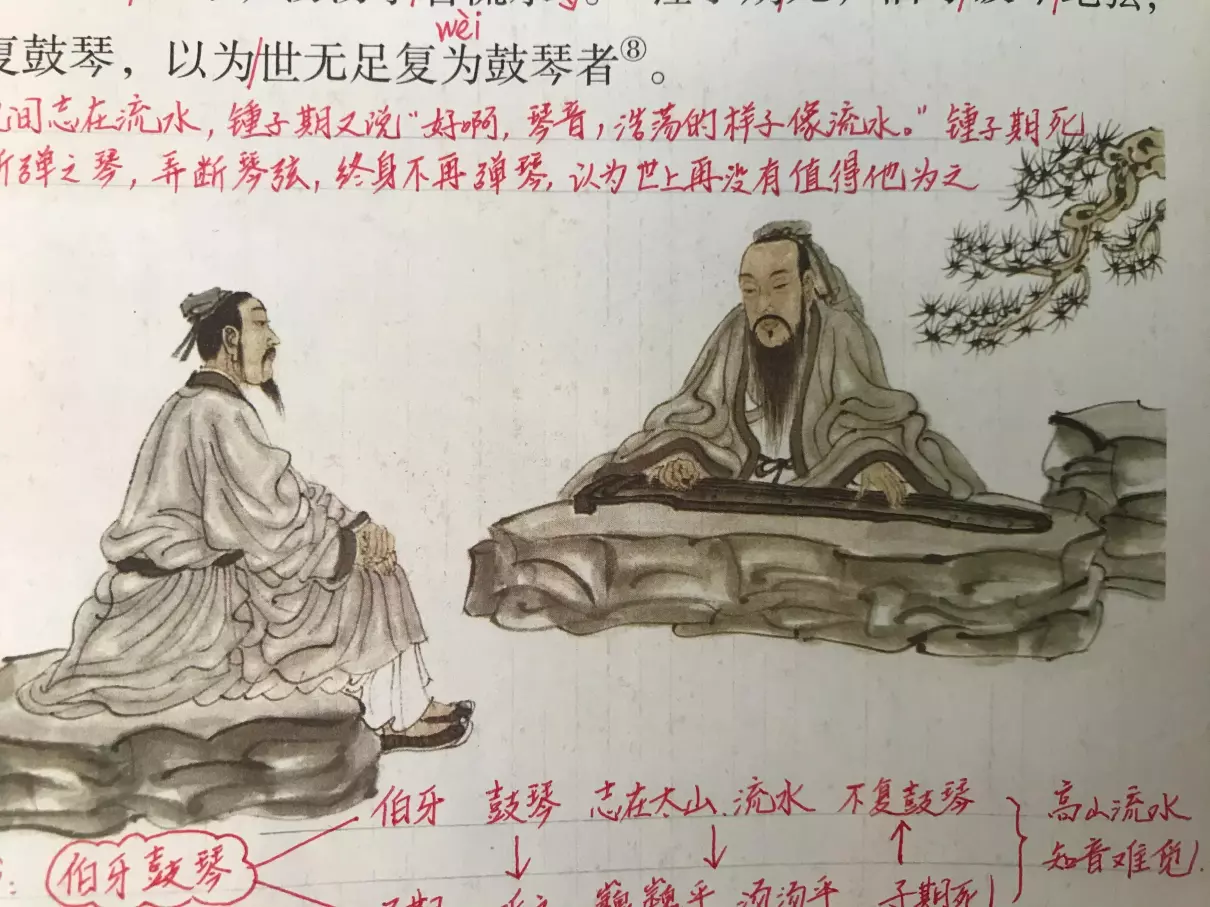 wèi
复鼓琴，以为/世无足复为鼓琴者⑧。
间志在流水，锺子期又说“好啊，琴音，浩荡的样子像流水。”锺子期死
弹之琴，弄断琴弦，终身不再弹琴，认为世上再没有值得他为之
伯牙 鼓琴 志在太山、流水 不复鼓琴
高山流水
知音难觅！
伯牙鼓琴
子期 巍巍乎 汤汤乎 子期死